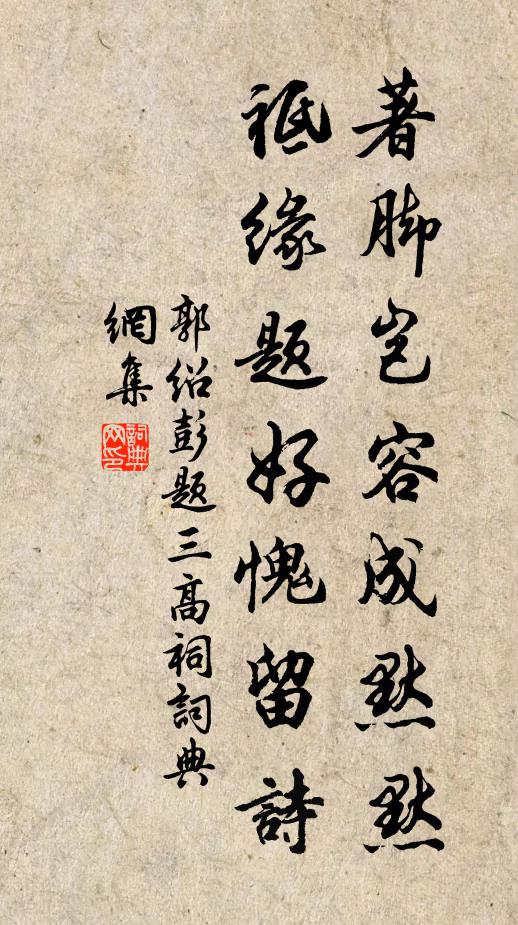 著脚岂容成默默
祗缘题好愧留詩
郭绍彭题三高祠詞典
網集
詞典
网印